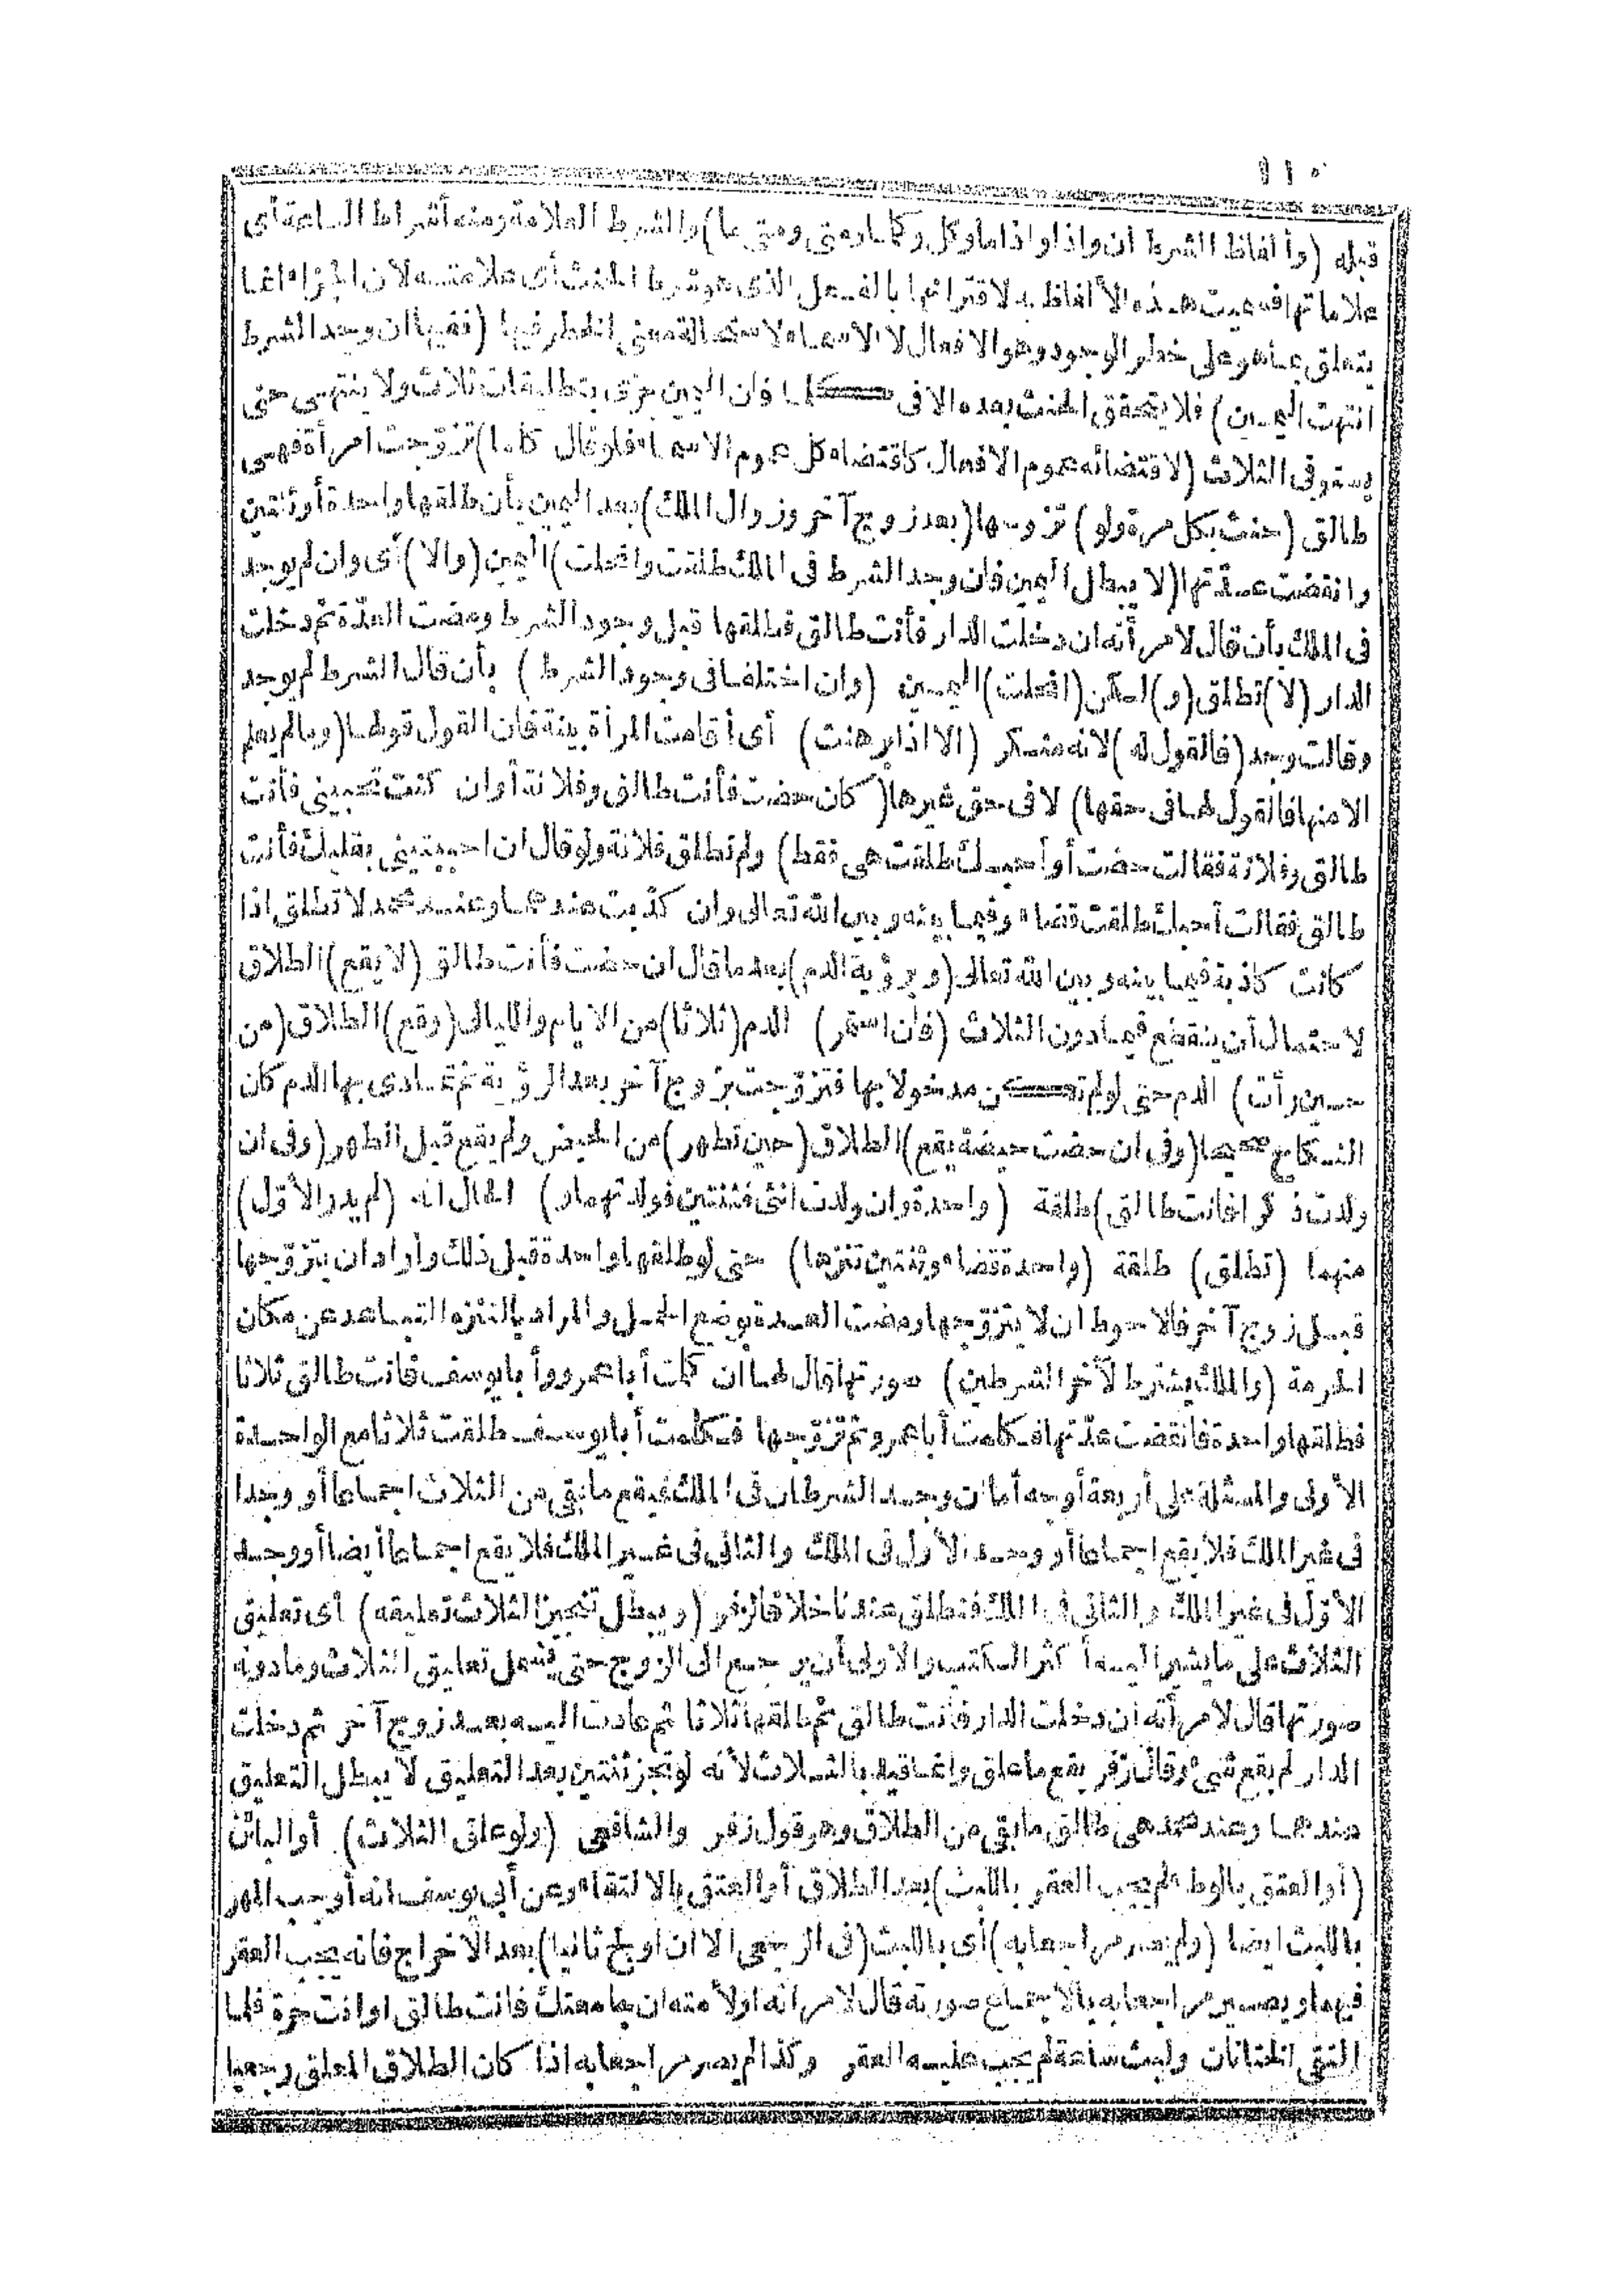 ١١٠
قبله (وألفاظ الشرط ان واذا واذا ما وكل وكلما ومتى ومتى ما) والشرط العلامة ومنه أشراط الساعة أى
علاماتها فسميت هذه الألفاظ به لاقترانها بالفعل الذى هو شرط الحنث أى علامته لان الجزاء انما
يتعلق بما هو على خطر الوجود وهو الافعال لا الاسماء لاستحالة معنى الخطر فيها (ففيها ان وجد الشرط
انتهت اليمين) فلا يتحقق الحنث بعده الا فى كلما فان اليمين بتطليقات ثلاث ولا ينتهى حتى
يستوفى الثلاث (لاقتضائه عموم الافعال كاقتضاء كل عموم الاسماء فلو قال كلما) تزوّجت امرأة فهى
طالق (حنث بكل مرة ولو) تزوجها (بعد زوج آخر وزوال الملك) بعد اليمين بأن طلقها واحدة أو ثنتين
وانقضت عدّتها (لا يبطل اليمين فان وجد الشرط فى الملك طلقت وانحلت) اليمين (والا) أى وان لم يوجد
فى الملك بأن قال لامرأته ان دخلت الدار فأنت طالق فطلقها قبل وجود الشرط ومضت العدّة ثم دخلت
الدار (لا) تطلق (و) لكن (انحلت) اليمين (وان اختلفا فى وجود الشرط) بأن قال الشرط لم يوجد
وقالت وجد (فالقول له) لانه منكر (الا اذا برهنت) أى أقامت المرأة بينة فان القول قولها (وما لم يعلم
الا منها فالقول لها فى حقها) لا فى حق غيرها (كان حضت فأنت طالق وفلانة أو ان كنت تحبينى فأنت
طالق وفلانة فقالت حضت أو أحبك طلقت هى فقط) ولم تطلق فلانة ولو قال ان احببتينى بقلبك فأنت
طالق فقالت أحبك طلقت قضاء وفيما بينه وبين الله تعالى وان كذبت عندهما وعند محمد لا تطلق اذا
كانت كاذبة فيما بينه وبين الله تعالى (وبرؤية الدم) بعد ما قال ان حضت فأنت طالق (لا يقع) الطلاق
لاحتمال أن ينقطع فيما دون الثلاث (فان استمر) الدم (ثلاثا) من الايام والليالى (وقع) الطلاق (من
حين رأت) الدم حتى لو لم تكن مدخولا بها فتزوّجت بزوج آخر بعد الرؤية ثم تمادى بها الدم كان
النكاح صحيحا (وفى ان حضت حيضة يقع) الطلاق (حين تطهر) من الحيض ولم يقع قبل الطهر (وفى ان
ولدت ذكرا فانت طالق) طلقة (واحدة وان ولدت انثى فثنتين فولدتهما و) الحال انه (لم يدر الأوّل)
منهما (تطلق) طلقة (واحدة قضاء وثنتين تنزها) حتى لو طلقها واحدة قبل ذلك وأراد ان يتزوّجها
قبل زوج آخر فالاحوط ان لا يتزوّجها ومضت العدة بوضع الحمل والمراد بالتنزه التباعد عن مكان
الحرمة (والملك يشترط لآخر الشرطين) صورتها قال لها ان كلمت أبا عمرو وأبا يوسف فانت طالق ثلاثا
فطلقها واحدة فانقضت عدّتها فكلمت أبا عمرو ثم تزوّجها فكلمت أبا يوسف طلقت ثلاثا مع الواحدة
الأولى والمسئلة على أربعة أوجه أما ان وجد الشرطان فى الملك فيقع ما بقى من الثلاث اجماعا أو وجدا
فى غير الملك فلا يقع اجماعا أو وجد الاول فى الملك والثانى فى غير الملك فلا يقع اجماعا أيضا أو وجد
الأوّل فى غير الملك والثانى فى الملك فتطلق عندنا خلافا لزفر (ويبطل تنجيز الثلاث تعليقه) أى تعليق
الثلاث على ما يشير اليه أكثر الكتب والاولى أن يرجع الى الزوج حتى يشمل تعليق الثلاث وما دونه
صورتها قال لامرأته ان دخلت الدار فأنت طالق ثم طلقها ثلاثا ثم عادت اليه بعد زوج آخر ثم دخلت
الدار لم يقع شئ وقال زفر يقع ما علق وانما قيد بالثلاث لأنه لو نجز ثنتين بعد التعليق لا يبطل التعليق
عندهما وعند محمد هى طالق ما بقى من الطلاق وهو قول زفر والشافعى (ولو علق الثلاث) أو البائن
(أو العتق بالوطء لم يجب العقر باللبث) بعد الطلاق أو العتق بالالتقاء وعن أبى يوسف انه أوجب المهر
باللبث ايضا (ولم يصر مراجعا به) أى باللبث (فى الرجعى الا ان اولج ثانيا) بعد الاخراج فانه يجب العقر
فيهما ويصير مراجعا به بالاجماع صورته قال لامرأته اولأمته ان جامعتك فانت طالق او انت حرة فلما
التقى الختانان ولبث ساعة لم يجب عليه العقر وكذا لم يصر مراجعا به اذا كان الطلاق المعلق رجعيا